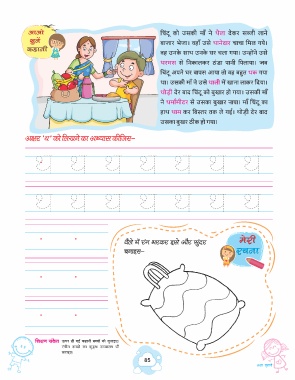 आओ
सुनें
कहानी
चिंटू को उसकी माँ ने थैला देकर सब्जी लाने
बाजार भेजा। वहाँ उसे थानेदार चाचा मिल गये।
वह उनके साथ उनके घर चला गया। उन्होंने उसे
थरमस से निकालकर ठंडा पानी पिलाया। जब
चिंटू अपने घर वापस आया तो वह बहुत थक गया
था। उसकी माँ ने उसे थाली में खाना लाकर दिया।
थोड़ी देर बाद चिंटू को बुखार हो गया। उसकी माँ
ने थर्मामीटर से उसका बुखार नापा। माँ चिंटू का
हाथ थाम कर बिस्तर तक ले गई। थोड़ी देर बाद
उसका बुखार ठीक हो गया।
अक्षर 'थ' को लिखने का अभ्यास कीजिए-
थैले में रंग भरकर इसे और सुंदर
बनाइए-
मेरी
रचना
शिक्षण संकेत
85